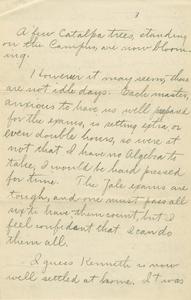 A few Catalpa trees, standing
on the Campus, are now bloom-
ing.
However it may seem, these
are not idle days. Each master,
anxious to have us well prepared
for the exams, is setting extra, or
even double hours, so were it
not that I have no Algebra to
take, I would be hard pressed
for time. The Yale exams are
tough, and one must pass all
six to have them count, but I
feel confident that I can do
them all.
I guess Kenneth is now
well settled at home. It was